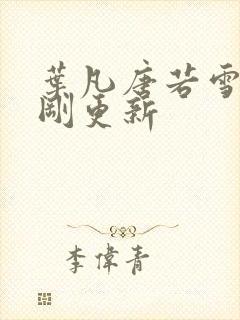 葉凡唐若雪
剛更新
李偉青